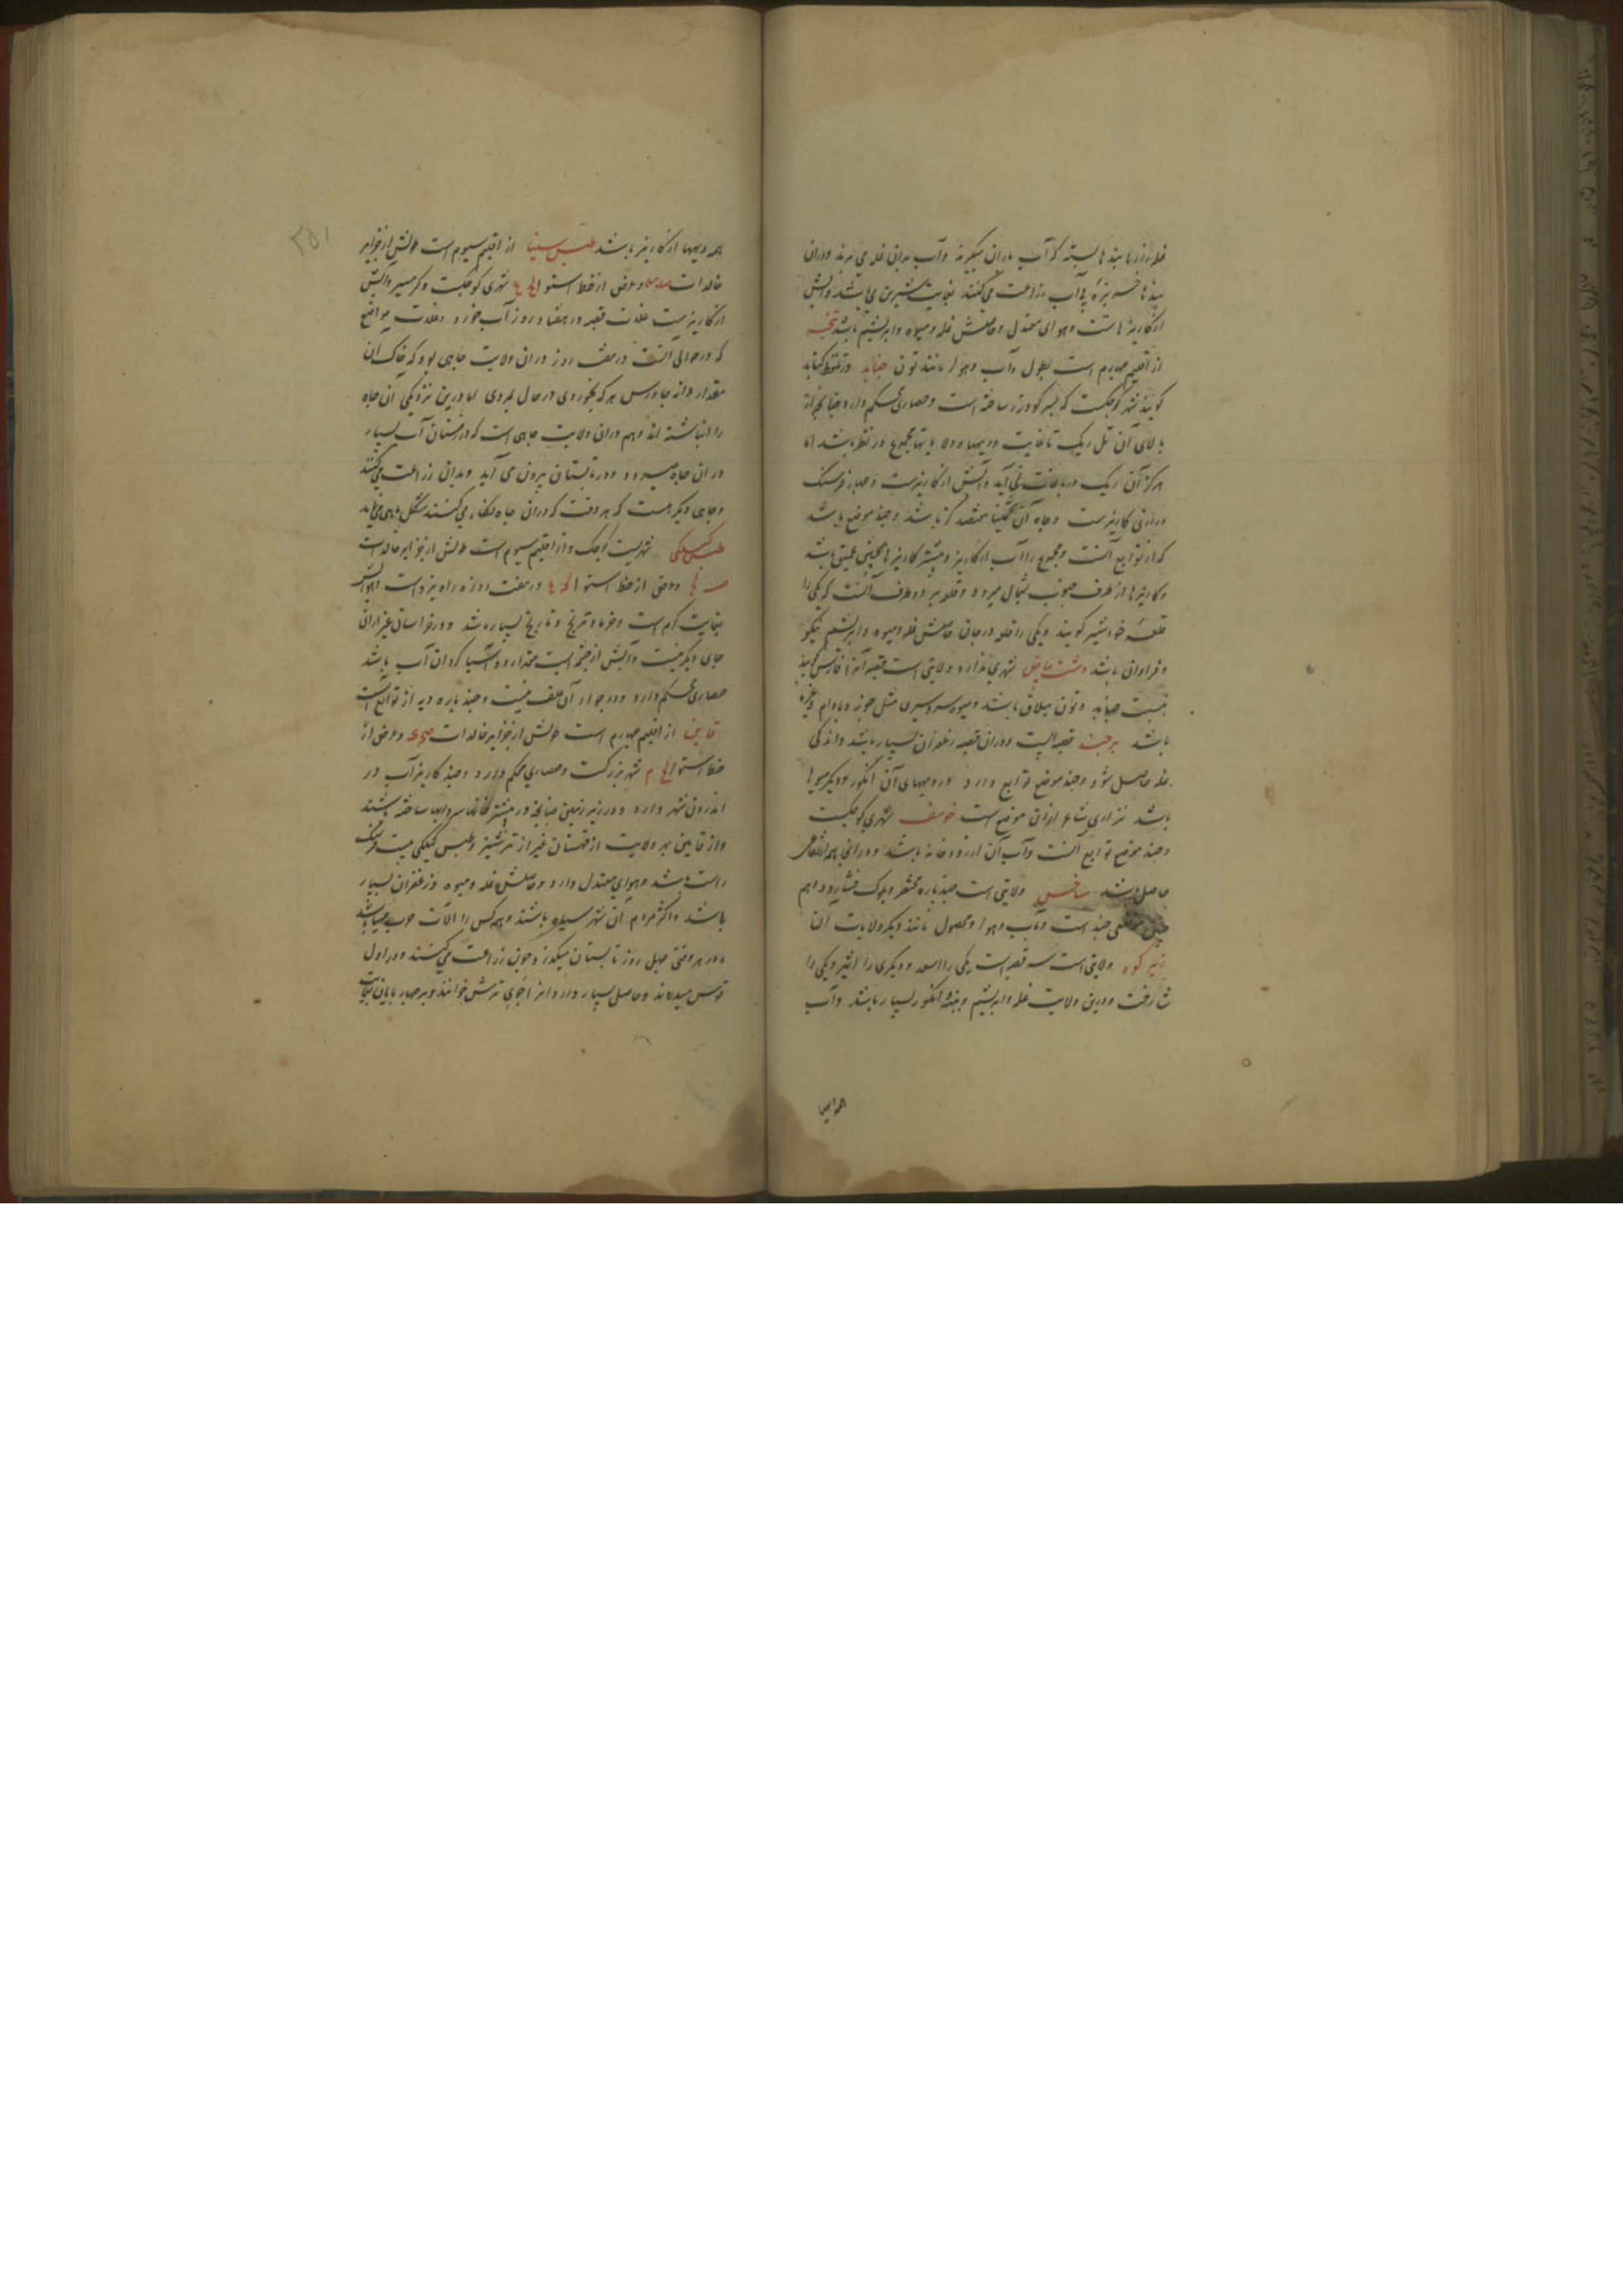 غله‌زارها بندها بسته که آب باران میگیرند و آب بدان غله می برند و دران
بندها خربزه بی آب زراعت می کنند بغایت شیرین می باشد و آبش
از کاریزهاست و هوای معتدل و حاصلش غله و میوه و ابریشم باشد تنجه
از اقلیم چهارم است بطول و آب و هوا مانند تون جنابد در تلفظ کنابد
گویند شهر کوچکست که پسر کودرز ساخته است و حصاری محکم دارد چنانچه از
بالای آن تل ریک تا غایت دیهها و ولایتها مجموع در نظر باشد اما
هرکز آن ریک در باغات نمی آید و آبش از کاریزست و چهار فرسنک
درازی کاریزست و چاه آن تخمینا هفتصد کز باشد و چند موضع باشد
که از توابع آنست و مجموع را آب از کاریز و بیشتر کاریزها همچنین عمیق باشد
و کاریزها از طرف جنوب بشمال میرود و قلعه بر دو طرف آنست که یکی را
قلعه خواشیر گویند و یکی را قلعه درجان حاصلش غله و میوه و ابریشم نیکو
و فراوان باشد دشت بیاض شهری ندارد ولایتی است قصبه آنرا فارس گویند
بنسبت جنابد و تون ییلاق باشد و میوه سردسیری مثل جوز و بادام و غیره
باشد برجند قصبه ایست و دران قصبه زعفران بسیار باشد و اندکی
غله حاصل شود و چند موضع توابع دارد و در دیههای آن انگور و دیگر میوها
باشد نزاری شاعر ازان موضع است خوسف شهری کوچکست
و چند موضع توابع آنست و آب آن از رودخانه باشد و دران همه ارتفاعی
حاصل باشد ساخس ولایتی است چند پاره مختصر و بلوک فشارود و هم
چنین موضعی چند است و آب و هوا و محصول مانند دیگر ولایات آن
زیرکوه ولایتی است سه قصبه است یکی را اسعد و دیگری را اثیر و یکی را
شارخت و درین ولایت غله و ابریشم و پنبه و انگور بسیار باشد و آب
همه دیها
۳۵۱
همه دیهها از کاریز باشد طبس سینا از اقلیم سیوم است طولش از جزایر
خالدات و عرض از خط استوا شهری کوچکست و کرمسیر و آبش
از کاریزست غلات قصبه در هفتاد روز آب خورد و غلات مواضع
که در حوالی آنست در هفت روز دران ولایت چاهی بود که خاک آن
مقدار دانه جاورس هر که بخوردی در حال بمردی اما درین نزدیکی آن چاه
را انباشته اند و هم دران ولایت چاهی است که در زمستان آب بسیار
در آن چاه میرود و در تابستان بیرون می آید و بدان زراعت می کنند
و چاهی دیگر هست که هر وقت که دران چاه نگاه می کنند شکل ماهی می نماید
طبس کیلکی شهریست کوچک و از اقلیم سیوم است طولش از جزایر خالدات
و عرض از خط استوا در هفت روزه راه یزد است و هوایش
بغایت کرم است و خرما و ترنج و نارنج بسیار باشد و در خراسان غیر از آن
جای دیگر نیست و آبش از چشمه است مقدار دو آسیا کردان آب باشد
حصاری محکم دارد و در جوار آن علف نیست و چند پاره دیه از توابع آنست
قاین از اقلیم چهارم است طولش از جزایر خالدات و عرض از
خط استوا شهر بزرکست و حصاری محکم دارد و چند کاریز آب در
اندرون شهر دارد و در زیر زمین چنانچه در بیشتر خانها سردابها ساخته باشند
و از قاین بهر ولایت از قهستان غیر از ترشیز و طبس کیلکی بیست فرسنک
راست باشد و هوای معتدل دارد و حاصلش غله و میوه و زعفران بسیار
باشد و اکثر مردم آن شهر سیاه باشند و همه کس را آلات حرب مهیا باشد
و در هر وقتی چهل روز تابستان میکذرد چون زراعت می کنند و در اول
قوس میدروند و حاصل بسیار دارد و آنرا جوی ترش خوانند و بر چهار پایان بغایت